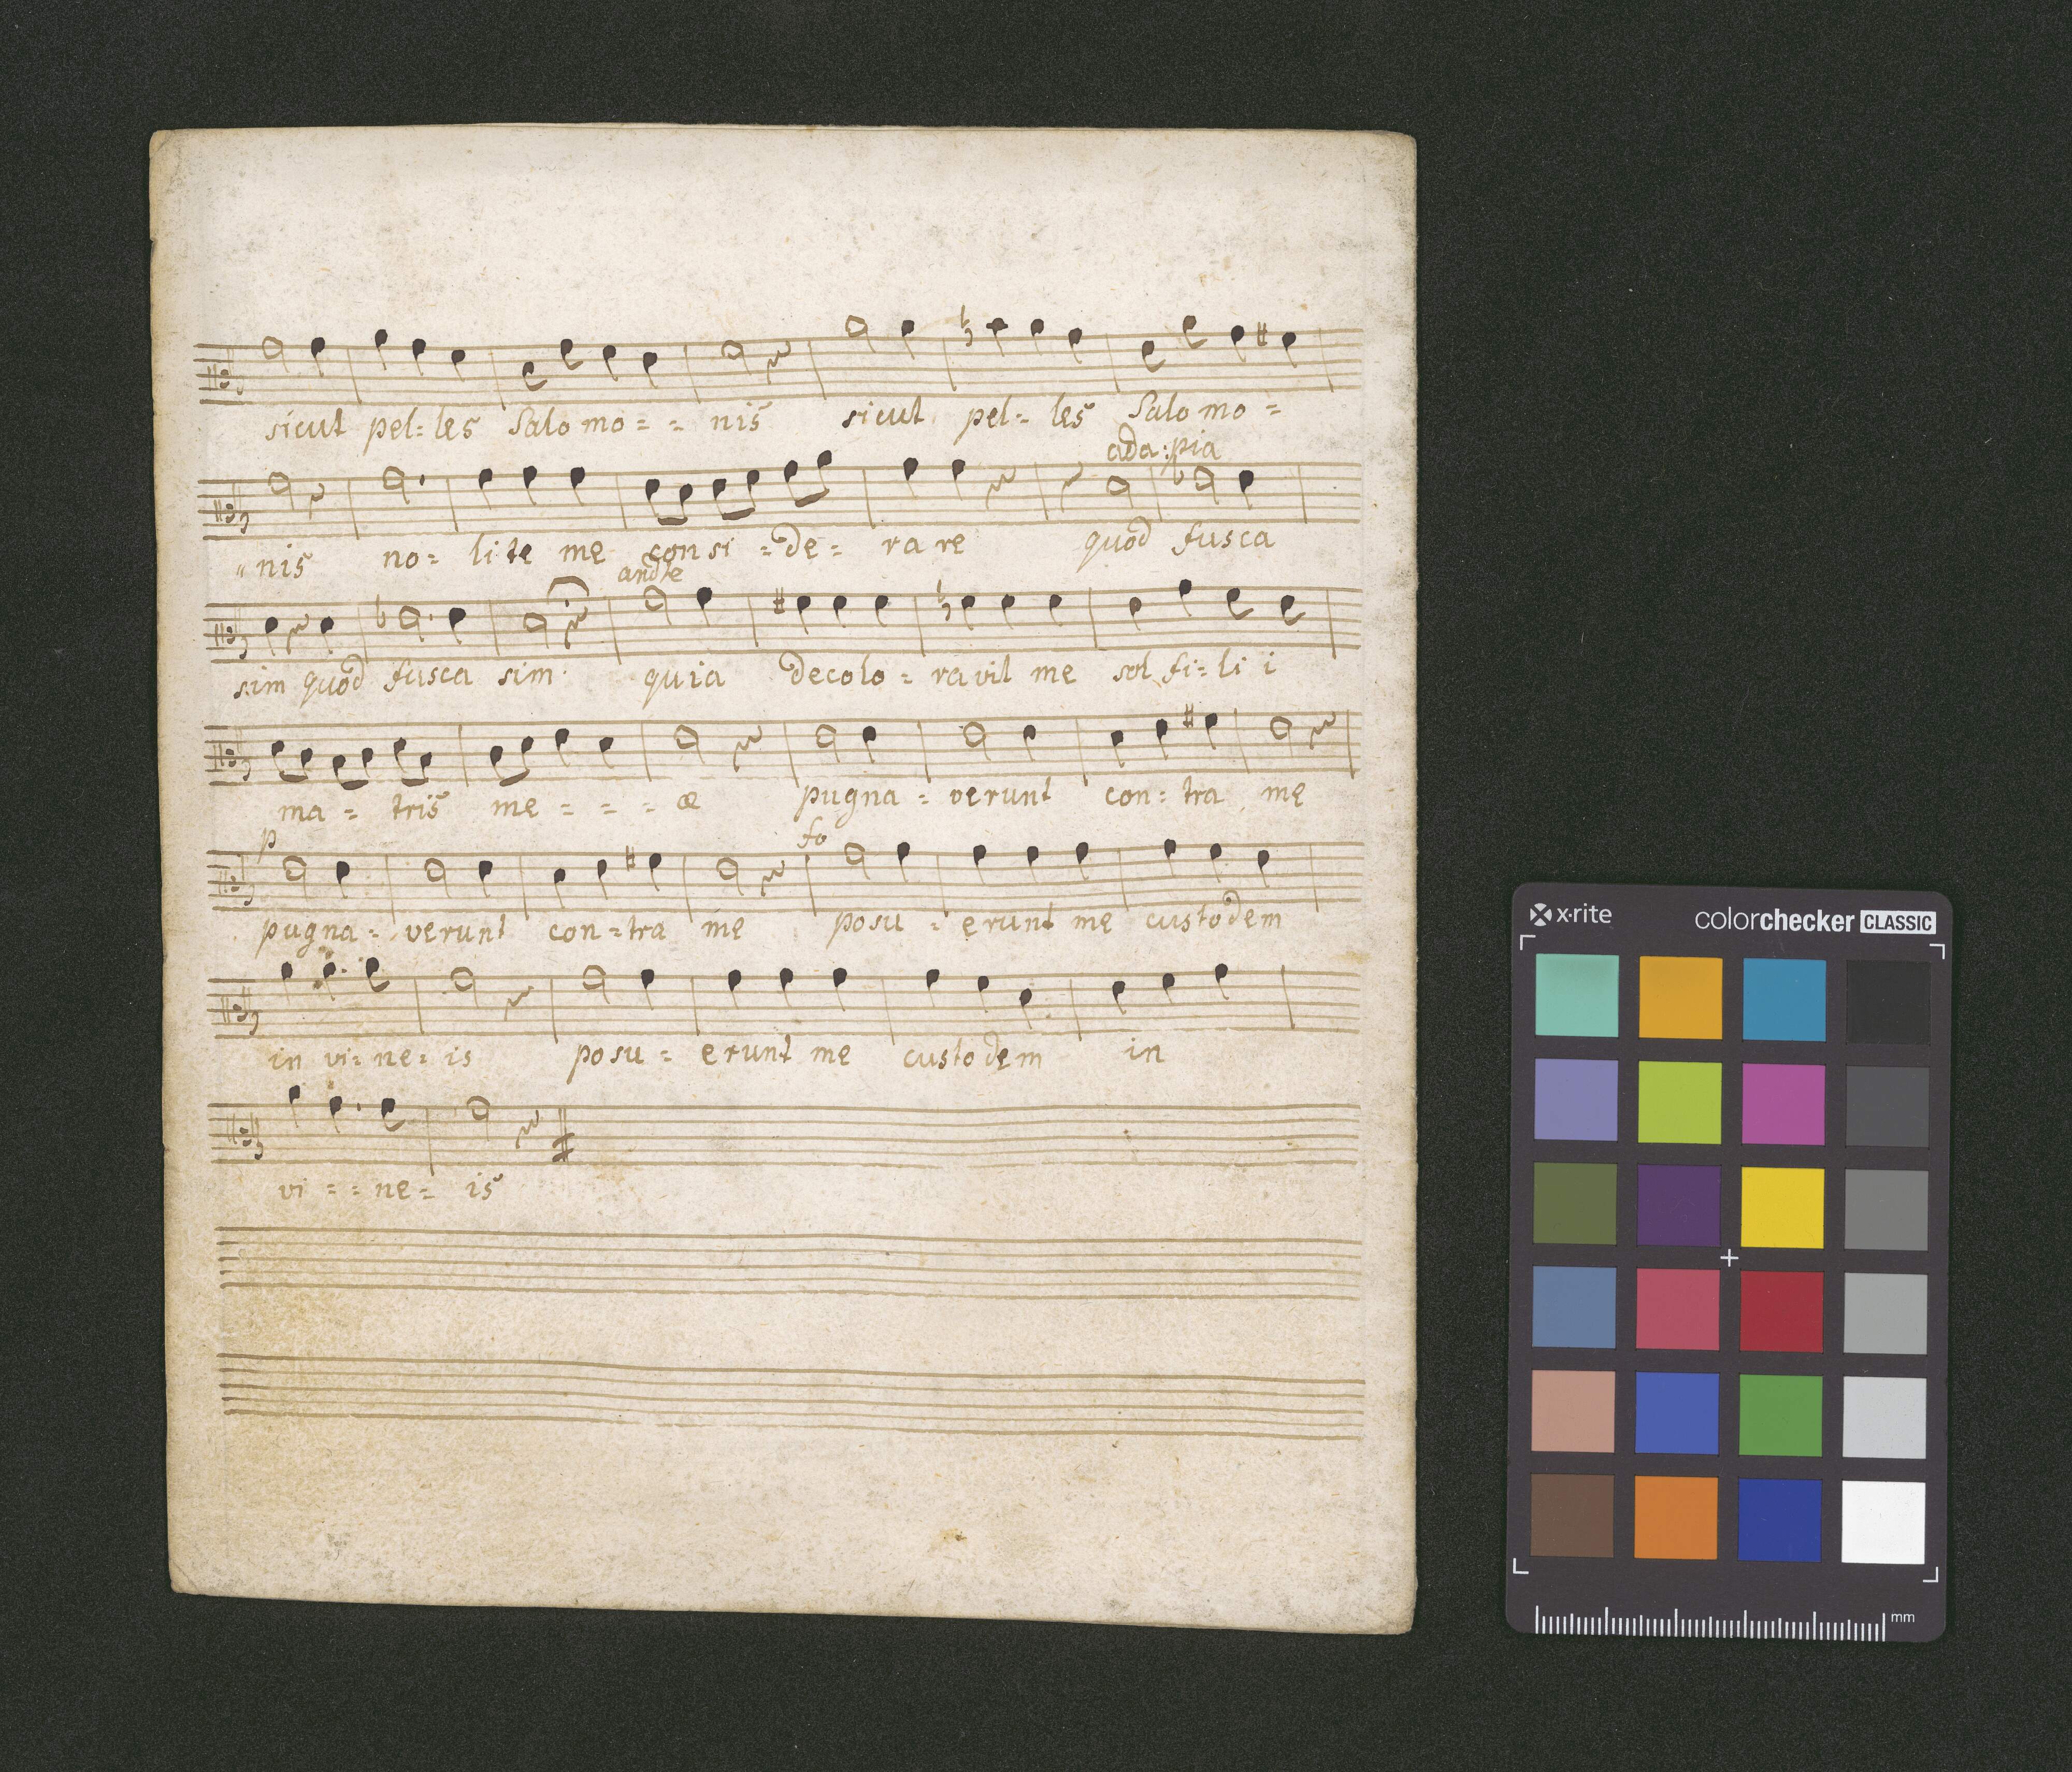 sicut pel= les Salo mo = = nis sicut pel= les Salo mo =
ada: pia
" nis no= li te me con si =de= ra re quod fusca
andte
sim quod fusca sim. quia decolo= ravit me sol fi= li i
ma = tris me = = = æ pugna= verunt con= tra me
p fo
pugna= verunt con=tra me posu = erunt me custodem
in vi= ne= is posu = erunt me custodem in
vi = = ne= is
x·rite colorchecker CLASSIC
mm